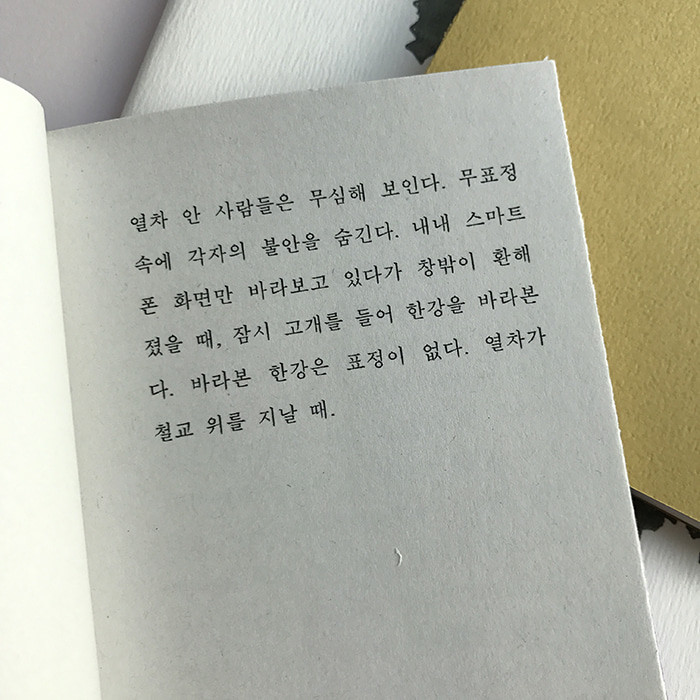 열차 안 사람들은 무심해 보인다. 무표정
속에 각자의 불안을 숨긴다. 내내 스마트
폰 화면만 바라보고 있다가 창밖이 환해
졌을 때, 잠시 고개를 들어 한강을 바라본
다. 바라본 한강은 표정이 없다. 열차가
철교 위를 지날 때.